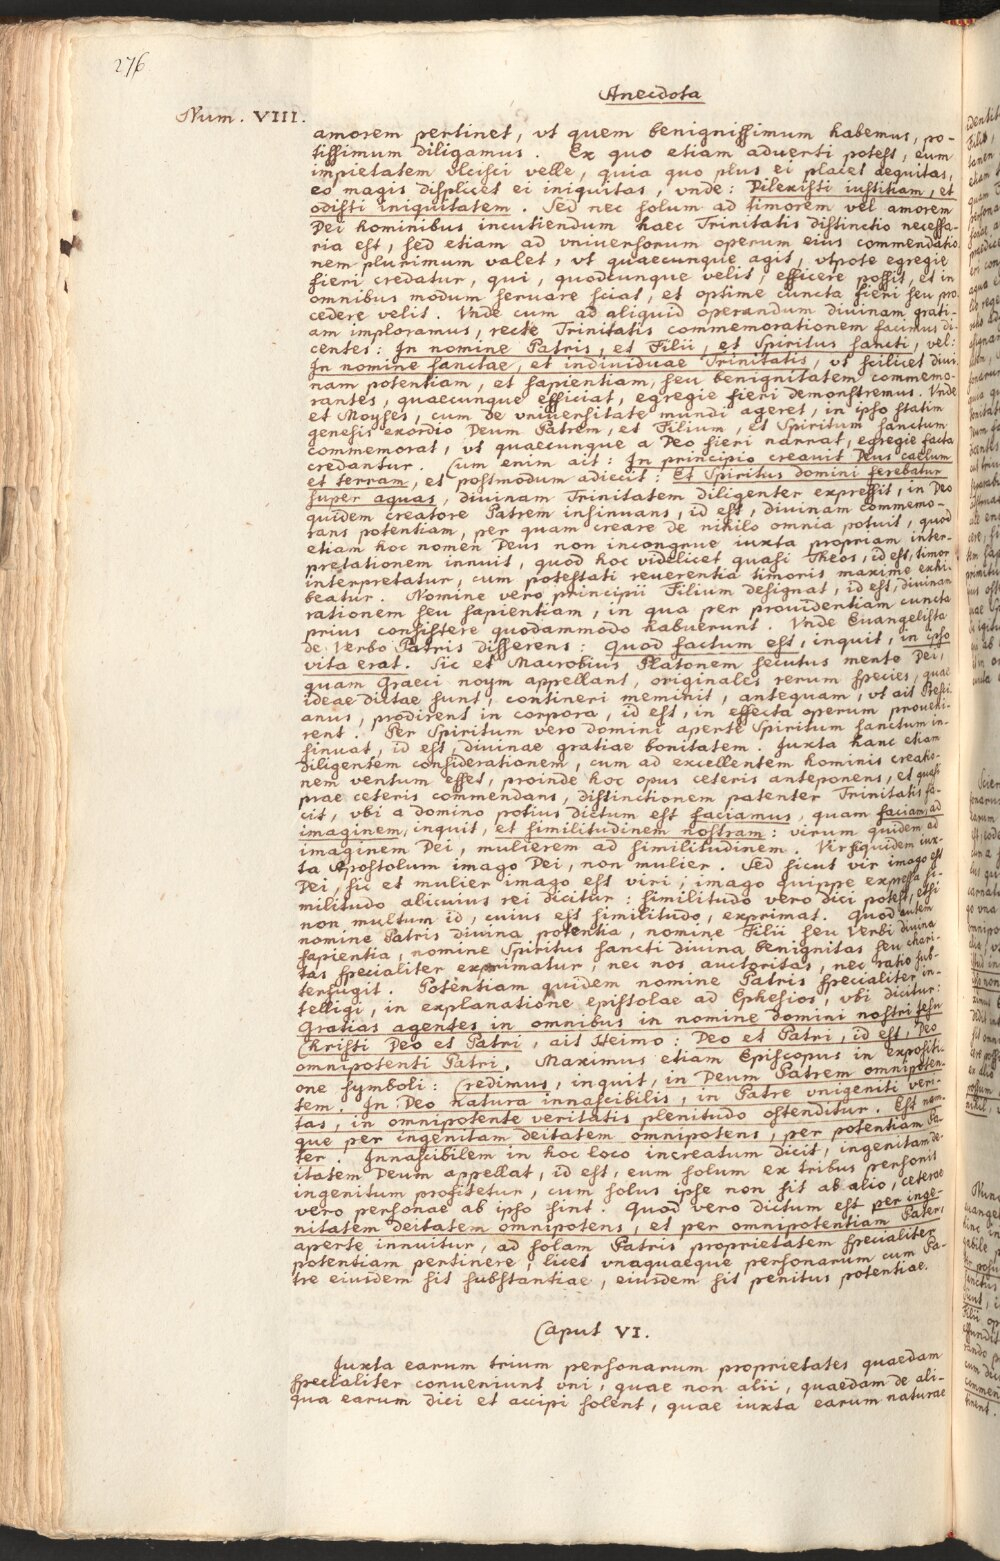 276
Anecdota
Num. VIII.
amorem pertinet, vt quem benignissimum habemus, po-
tissimum diligamus. Ex quo etiam aduerti potest, eum
impietatem vlcisci velle, quia quo plus ei placet aequitas,
eo magis displicet ei iniquitas, vnde: Dilexisti iustitiam, et
odisti iniquitatem. Sed nec solum ad timorem vel amorem
Dei hominibus incutiendum haec Trinitatis distinctio necessa-
ria est, sed etiam ad vniuersorum operum eius commendatio
nem plurimum valet, vt quaecunque agit, vtpote egregie
fieri credatur, qui, quodcunque velit, efficere possit, et in
omnibus modum seruare sciat, et optime cuncta fieri seu pro
cedere velit. Vnde cum ad aliquid operandum diuinam grati-
am imploramus, recte Trinitatis commemorationem facimus di-
centes: In nomine Patris, et Filii, et Spiritus sancti, vel:
In nomine sanctae, et indiuiduae Trinitatis, vt scilicet diui-
nam potentiam, et sapientiam, seu benignitatem commemo-
rantes, quaecunque efficiat, egregie fieri demonstremus. Vnde
et Moyses, cum de vniuersitate mundi ageret, in ipso statim
genesis exordio Deum Patrem, et Filium, et Spiritum sanctum
commemorat, vt quaecunque a Deo fieri narrat, egregie facta
credantur. Cum enim ait: In principio creauit Deus caelum
et terram, et postmodum adiecit: Et Spiritus domini ferebatur
super aquas, diuinam Trinitatem diligenter expressit, in Deo
quidem creatore Patrem insinuans, id est, diuinam commemo-
rans potentiam, per quam creare de nihilo omnia potuit, quod
etiam hoc nomen Deus non incongrue iuxta propriam inter-
pretationem innuit, quod hoc videlicet quasi Theos, id est, timor
interpretatur, cum potestati reuerentia timoris maxime exhi-
beatur. Nomine vero principii Filium designat, id est, diuinam
rationem seu sapientiam, in qua per prouidentiam cuncta
prius consistere quodammodo habuerunt. Vnde Euangelista
de Verbo Patris disserens: Quod factum est, inquit, in ipso
vita erat. Sic et Macrobius Platonem secutus mente Dei,
quam Graeci noym appellant, originales rerum species, quae
ideae dictae sunt, contineri meminit, antequam, vt ait Prisci-
anus, prodirent in corpora, id est, in effecta operum proueni-
rent. Per Spiritum vero domini aperte Spiritum sanctum in-
sinuat, id est, diuinae gratiae bonitatem. Juxta hanc etiam
diligentem considerationem, cum ad excellentem hominis creatio-
nem ventum esset, proinde hoc opus ceteris anteponens, et quasi
prae ceteris commendans, distinctionem patenter Trinitatis fa-
cit, vbi a domino potius dictum est faciamus, quam faciam, ad
imaginem, inquit, et similitudinem nostram: virum quidem ad
imaginem Dei, mulierem ad similitudinem. Vir siquidem iux-
ta Apostolum imago Dei, non mulier. Sed sicut vir imago est
Dei, sic et mulier imago est viri; imago quippe expressa si-
militudo alicuius rei dicitur: similitudo vero dici potest, etsi
non multum id, cuius est similitudo, exprimat. Quod autem
nomine Patris diuina potentia, nomine Filii seu Verbi diuina
sapientia, nomine Spiritus sancti diuina benignitas seu chari-
tas specialiter exprimatur, nec nos auctoritas, nec ratio sub-
terfugit. Potentiam quidem nomine Patris specialiter in-
telligi, in explanatione epistolae ad Ephesios, vbi dicitur:
Gratias agentes in omnibus in nomine domini nostri Jesu
Christi Deo et Patri, ait Heimo: Deo et Patri, id est, Deo
omnipotenti Patri. Maximus etiam Episcopus in expositi-
one symboli: Credimus, inquit, in Deum Patrem omnipoten-
tem. In Deo natura innascibilis, in Patre vnigeniti veri-
tas, in omnipotente veritatis plenitudo ostenditur. Est nam-
que per ingenitam deitatem omnipotens, per potentiam Pa-
ter. Innascibilem in hoc loco increatum dicit, ingenitam de-
itatem Deum appellat, id est, eum solum ex tribus personis
ingenitum profitetur, cum solus ipse non sit ab alio, ceterae
vero personae ab ipso sint. Quod vero dictum est per inge-
nitatem deitatem omnipotens, et per omnipotentiam Pater,
aperte innuitur, ad solam Patris proprietatem specialiter
potentiam pertinere, licet vnaquaeque personarum cum Pa-
tre eiusdem sit substantiae, eiusdem sit penitus potentiae.
Caput VI.
Juxta earum trium personarum proprietates quaedam
specialiter conueniunt vni, quae non alii, quaedam de ali-
qua earum dici et accipi solent, quae iuxta earum naturae